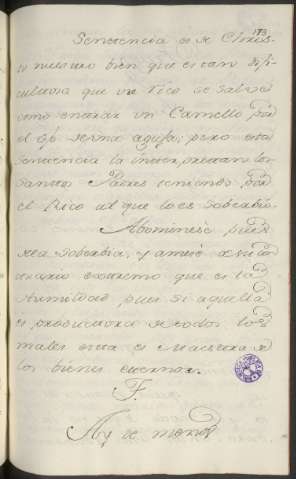 193
Sentencia es de Chris-
to nuestro bien que es tan difi-
cultoso que un Rico se salve
como entrar un Camello por
el ojo de una aguja; pero esta
sentencia la interpretan los
Santos Padres teniendo por
el Rico al que lo es soberbio
Abominese pues
esa soberbia, y amese su
contrario extremo que es la
Humildad pues si aquella
es productora de todos los
males esta es Maestra de
los bienes eternos.
F.
de